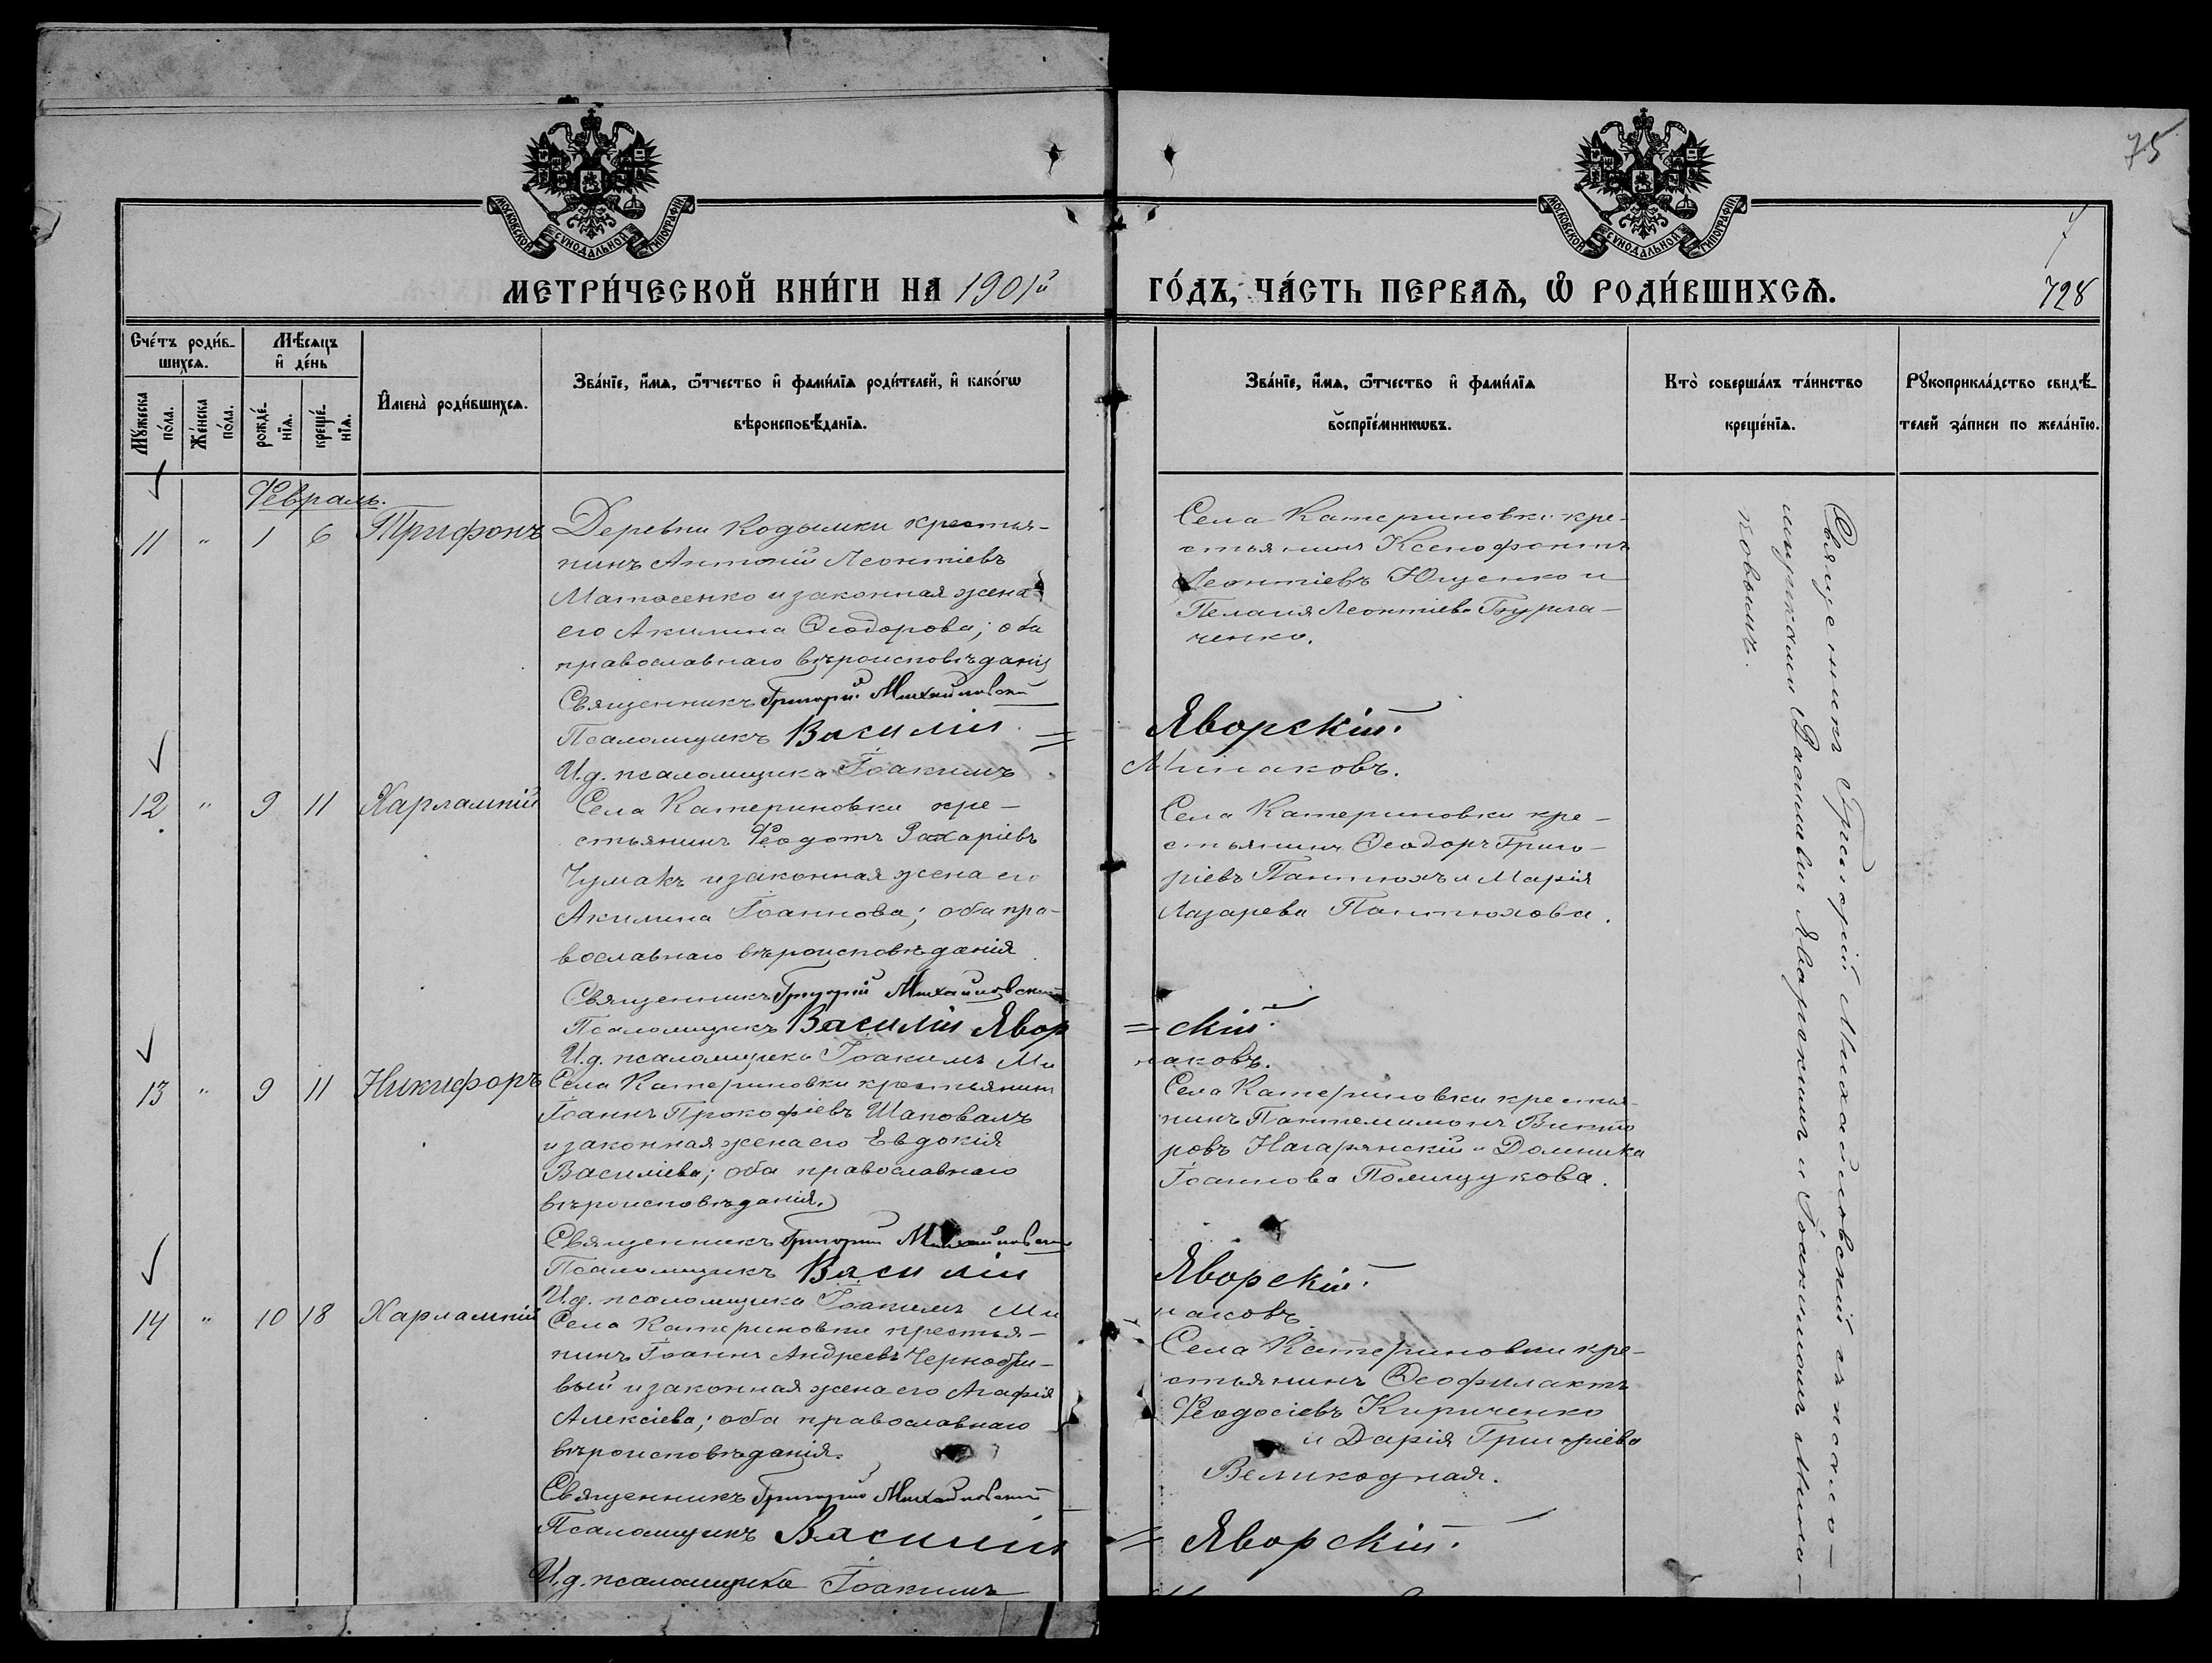 75
МОСКОВСКОЙ СѴНОДАЛЬНОЙ ТИПОГРАФІИ
МОСКОВСКОЙ СѴНОДАЛЬНОЙ ТИПОГРАФІИ
МЕТРИ́ЧЕСКОЙ КНИ́ГИ НА 1901й ГО́ДЪ, ЧА́СТЬ ПЕРВАѦ, Ѡ҆ РОДИ́ВШИХСѦ.
728
Сче́тъ роди́в-
шихсѧ.
Мѣ́сѧцъ
и҆ де́нь
Мꙋ́жеска
по́ла.
Же́нска
по́ла.
рожде́-
нїѧ.
креще́-
нїѧ.
И҆мена̀ роди́вшихсѧ.
Зва́нїе, и҆́мѧ, ѻ҆́тчество и҆ фами́лїѧ роди́телей, и҆ како́гѡ
вѣроисповѣ́данїѧ.
Зва́нїе, и҆́мѧ, ѻ҆́тчество и҆ фами́лїѧ
воспрїе́мникѡвъ.
Кто̀ соверша́лъ та́инство
креще́нїѧ.
Рꙋкоприкла́дство свидѣ́-
телей за́писи по жела́нїю.
Февраль.
11 " 1 6 Трифонъ
Деревни Кодымки крестья-
нинъ Антоній Леонтіевъ
Матосенко и законная жена
его Акилина Ѳеодорова; оба
православнаго вѣроисповѣданія
Священникъ Григорій Михайловскій
Псаломщикъ Василій =
И.д. псаломщика Іоакимъ
Села Катериновки кре-
стьянинъ Ксенофонтъ
Леонтіевъ Ющенко и
Пелагія Леонтіева Бурла-
ченко.
Яворскій.
Милаковъ.
12 " 9 11 Харлампій
Села Катериновки кре-
стьянинъ Феодотъ Захаріевъ
Чумакъ и законная жена его
Акилина Іоаннова; оба пра-
вославнаго вѣроисповѣданія
Священникъ Григорій Михайловскій
Псаломщикъ Василій Явор
И.д. псаломщика Іоакимъ Ми
Села Катериновки кре-
стьянинъ Ѳеодоръ Григо-
ріевъ Пантюхъ и Марія
Лазарева Пантюхова.
= скій.
лаковъ.
13 " 9 11 Никифоръ
Села Катериновки крестьянинъ
Іоаннъ Прокофіевъ Шаповалъ
и законная жена его Евдокія
Василіева; оба православнаго
вѣроисповѣданія.
Священникъ Григорій Михайловскій
Псаломщикъ Василій
И.д. псаломщика Іоакимъ Ми
Села Катериновки крестья-
нинъ Пантелимонъ Викто
ровъ Нагарянскій и Домника
Іоаннова Полищукова.
Яворскій.
лаковъ
14 " 10 18 Харлампій
Села Катериновки крестья-
нинъ Іоаннъ Андреевъ Чернобри-
вый и законная жена его Агафія
Алексіева; оба православнаго
вѣроисповѣданія.
Священникъ Григорій Михайловскій
Псаломщикъ Василій
И.д. псаломщика Іоакимъ
Села Катериновки кре-
стьянинъ Ѳеофилактъ
Феодосіевъ Кириченко
и Дарія Григоріева
Великодная.
= Яворскій.
Священникъ Григорій Михайловскій съ псало-
мщиками Василіемъ Яворскимъ и Іоакимомъ Мила-
ковымъ.